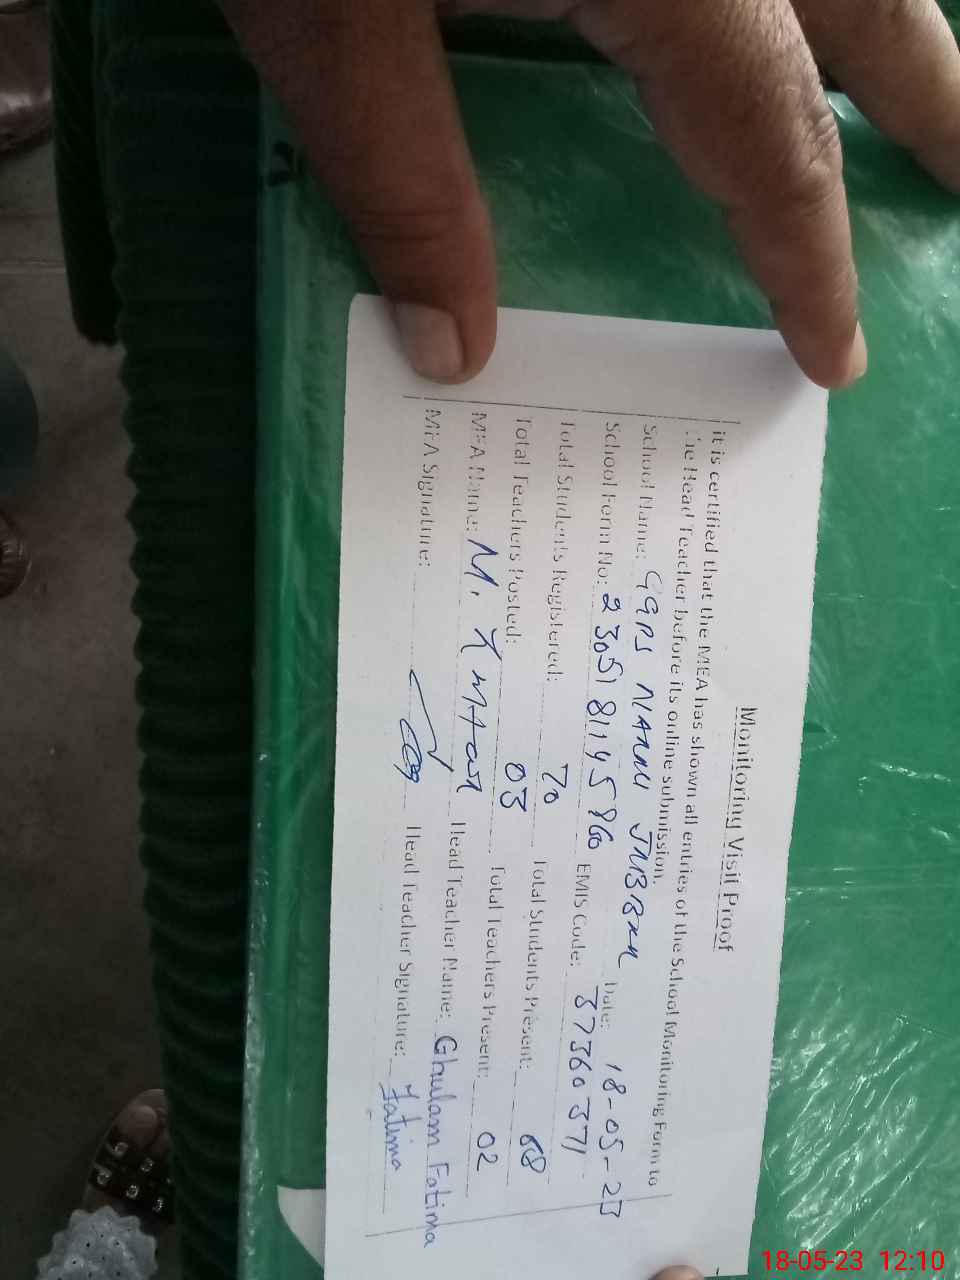 Monitoring Visit Proof
it is certified that the MEA has shown all entries of the School Monitoring Form to
the Head Teacher before its online submission.
School Name: GGPS Date: 18-05-23
School Form No: EMIS Code: 37360371
Total Students Registered: 70 Total Students Present: 68
Total Teachers Posted: 03 Total Teachers Present: 02
MEA Name: M. Head Teacher Name: Ghulam Fatima
MEA Signature: Head Teacher Signature: Fatima
18-05-23 12:10